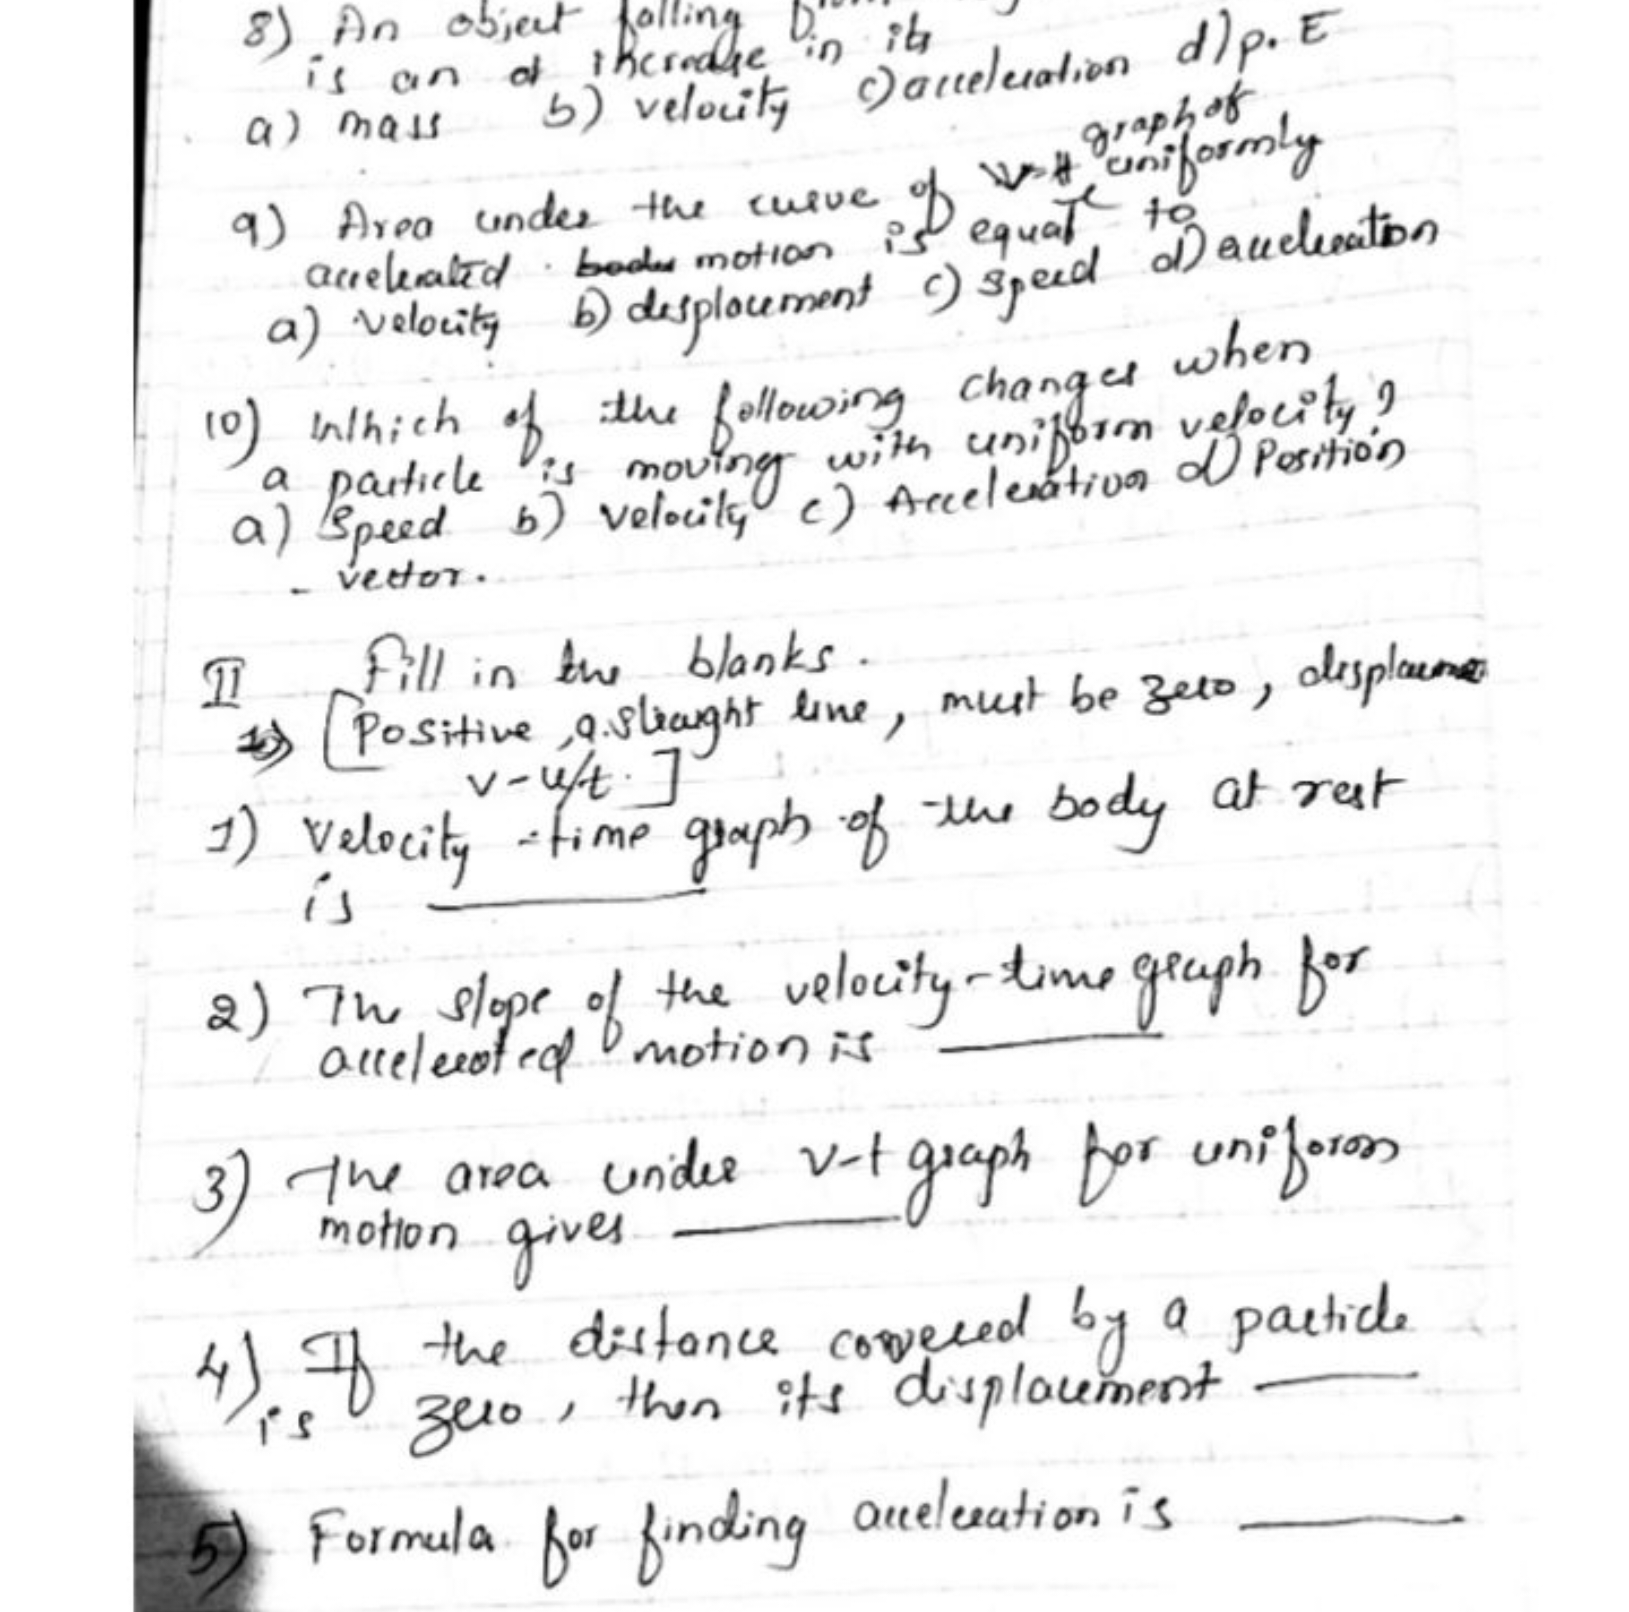 8) An object falling
is an increase in its
a) mass b) velocity c) acceleration d) p. E
graph of
9) Area under the curve of v-t uniformly
accelerated motion is equal to
a) velocity b) desplacement c) speed d) acceleration
10) Which of the following changes when
a particle is moving with uniform velocity?
a) Speed b) velocity c) Acceleration d) Position
- vector.
II Fill in the blanks.
[Positive, a straight line, must be zero, displaceme
v-u/t.]
1) Velocity -time graph of the body at rest
is ______
2) The slope of the velocity-time graph for
accelerated motion is ______
3) The area under v-t graph for uniform
motion gives ______
4) If the distance covered by a particle
is zero, then its displacement ______
5) Formula for finding acceleration is ______